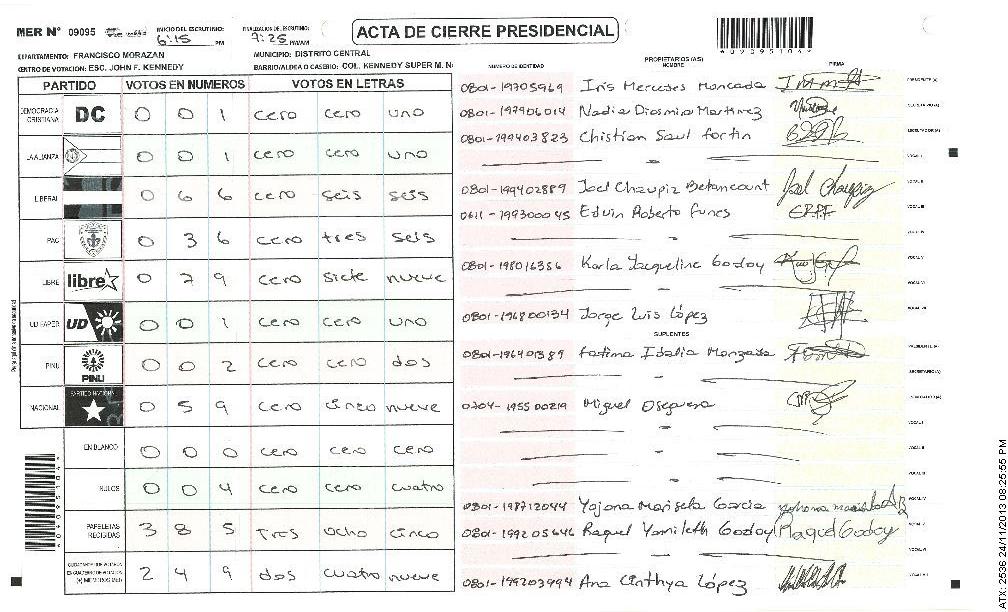 MER N° 09095 INICIO DEL ESCRUTINIO: 6:15 PM FINALIZACION DEL ESCRUTINIO: 7:25 PM/AM
ACTA DE CIERRE PRESIDENCIAL
DEPARTAMENTO: FRANCISCO MORAZAN MUNICIPIO: DISTRITO CENTRAL
CENTRO DE VOTACION: ESC. JOHN F. KENNEDY BARRIO/ALDEA O CASERIO: COL. KENNEDY SUPER M. N
PARTIDO VOTOS EN NUMEROS VOTOS EN LETRAS
DEMOCRACIA CRISTIANA DC 0 0 1 cero cero uno
LA ALIANZA 0 0 1 cero cero uno
LIBERAL 0 6 6 cero seis seis
PAC 0 3 6 cero tres seis
LIBRE libre 0 7 9 cero siete nueve
UD FAPER UD 0 0 1 cero cero uno
PINU PINU 0 0 2 cero cero dos
NACIONAL PARTIDO NACIONAL 0 5 9 cero cinco nueve
EN BLANCO 0 0 0 cero cero cero
NULOS 0 0 4 cero cero cuatro
PAPELETAS RECIBIDAS 3 8 5 tres ocho cinco
2 4 9 dos cuatro nueve
NUMERO DE IDENTIDAD PROPIETARIOS (AS) NOMBRE FIRMA
0801-19705969 Iris Mercedes Moncada PRESIDENTE (A)
0801-197906014 Nadia Diosmira Martinez SECRETARIO (A)
0801-199403823 Chistian Saul fortin ESCRUTADOR (A)
VOCAL I
0801-199402889 Joel Chaupiz Betancourt Joel Chaupiz VOCAL II
0611-199300045 Edvin Roberto Funes ERFF VOCAL III
VOCAL IV
0801-198016386 Karla Jacqueline Godoy VOCAL V
VOCAL VI
0801-196800134 Jorge Luis López VOCAL VII
SUPLENTES
0801-196401389 Fatima Idalia Monzada PRESIDENTE (A)
SECRETARIO (A)
0704-195500219 Miguel Oseguera ESCRUTADOR (A)
VOCAL I
VOCAL II
VOCAL III
0801-198712044 Yojona Marisela Garcia VOCAL IV
0801-199205646 Raquel Yamileth Godoy Raquel Godoy VOCAL V
VOCAL VI
0801-199203994 Ana Cinthya López VOCAL VII
ATX 2536 24/11/2013 08:25:55 PM